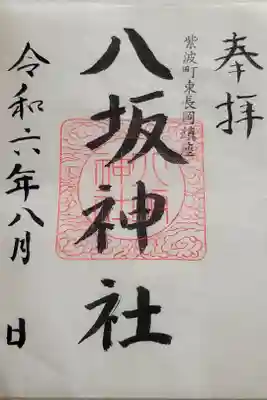 奉拝
紫波町東長岡鎮座
八坂神社
令和六年八月 日